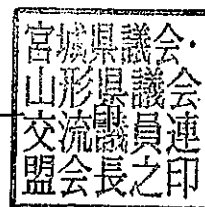 宮城県議会・
山形県議会
交流議員連
盟会長之印
印